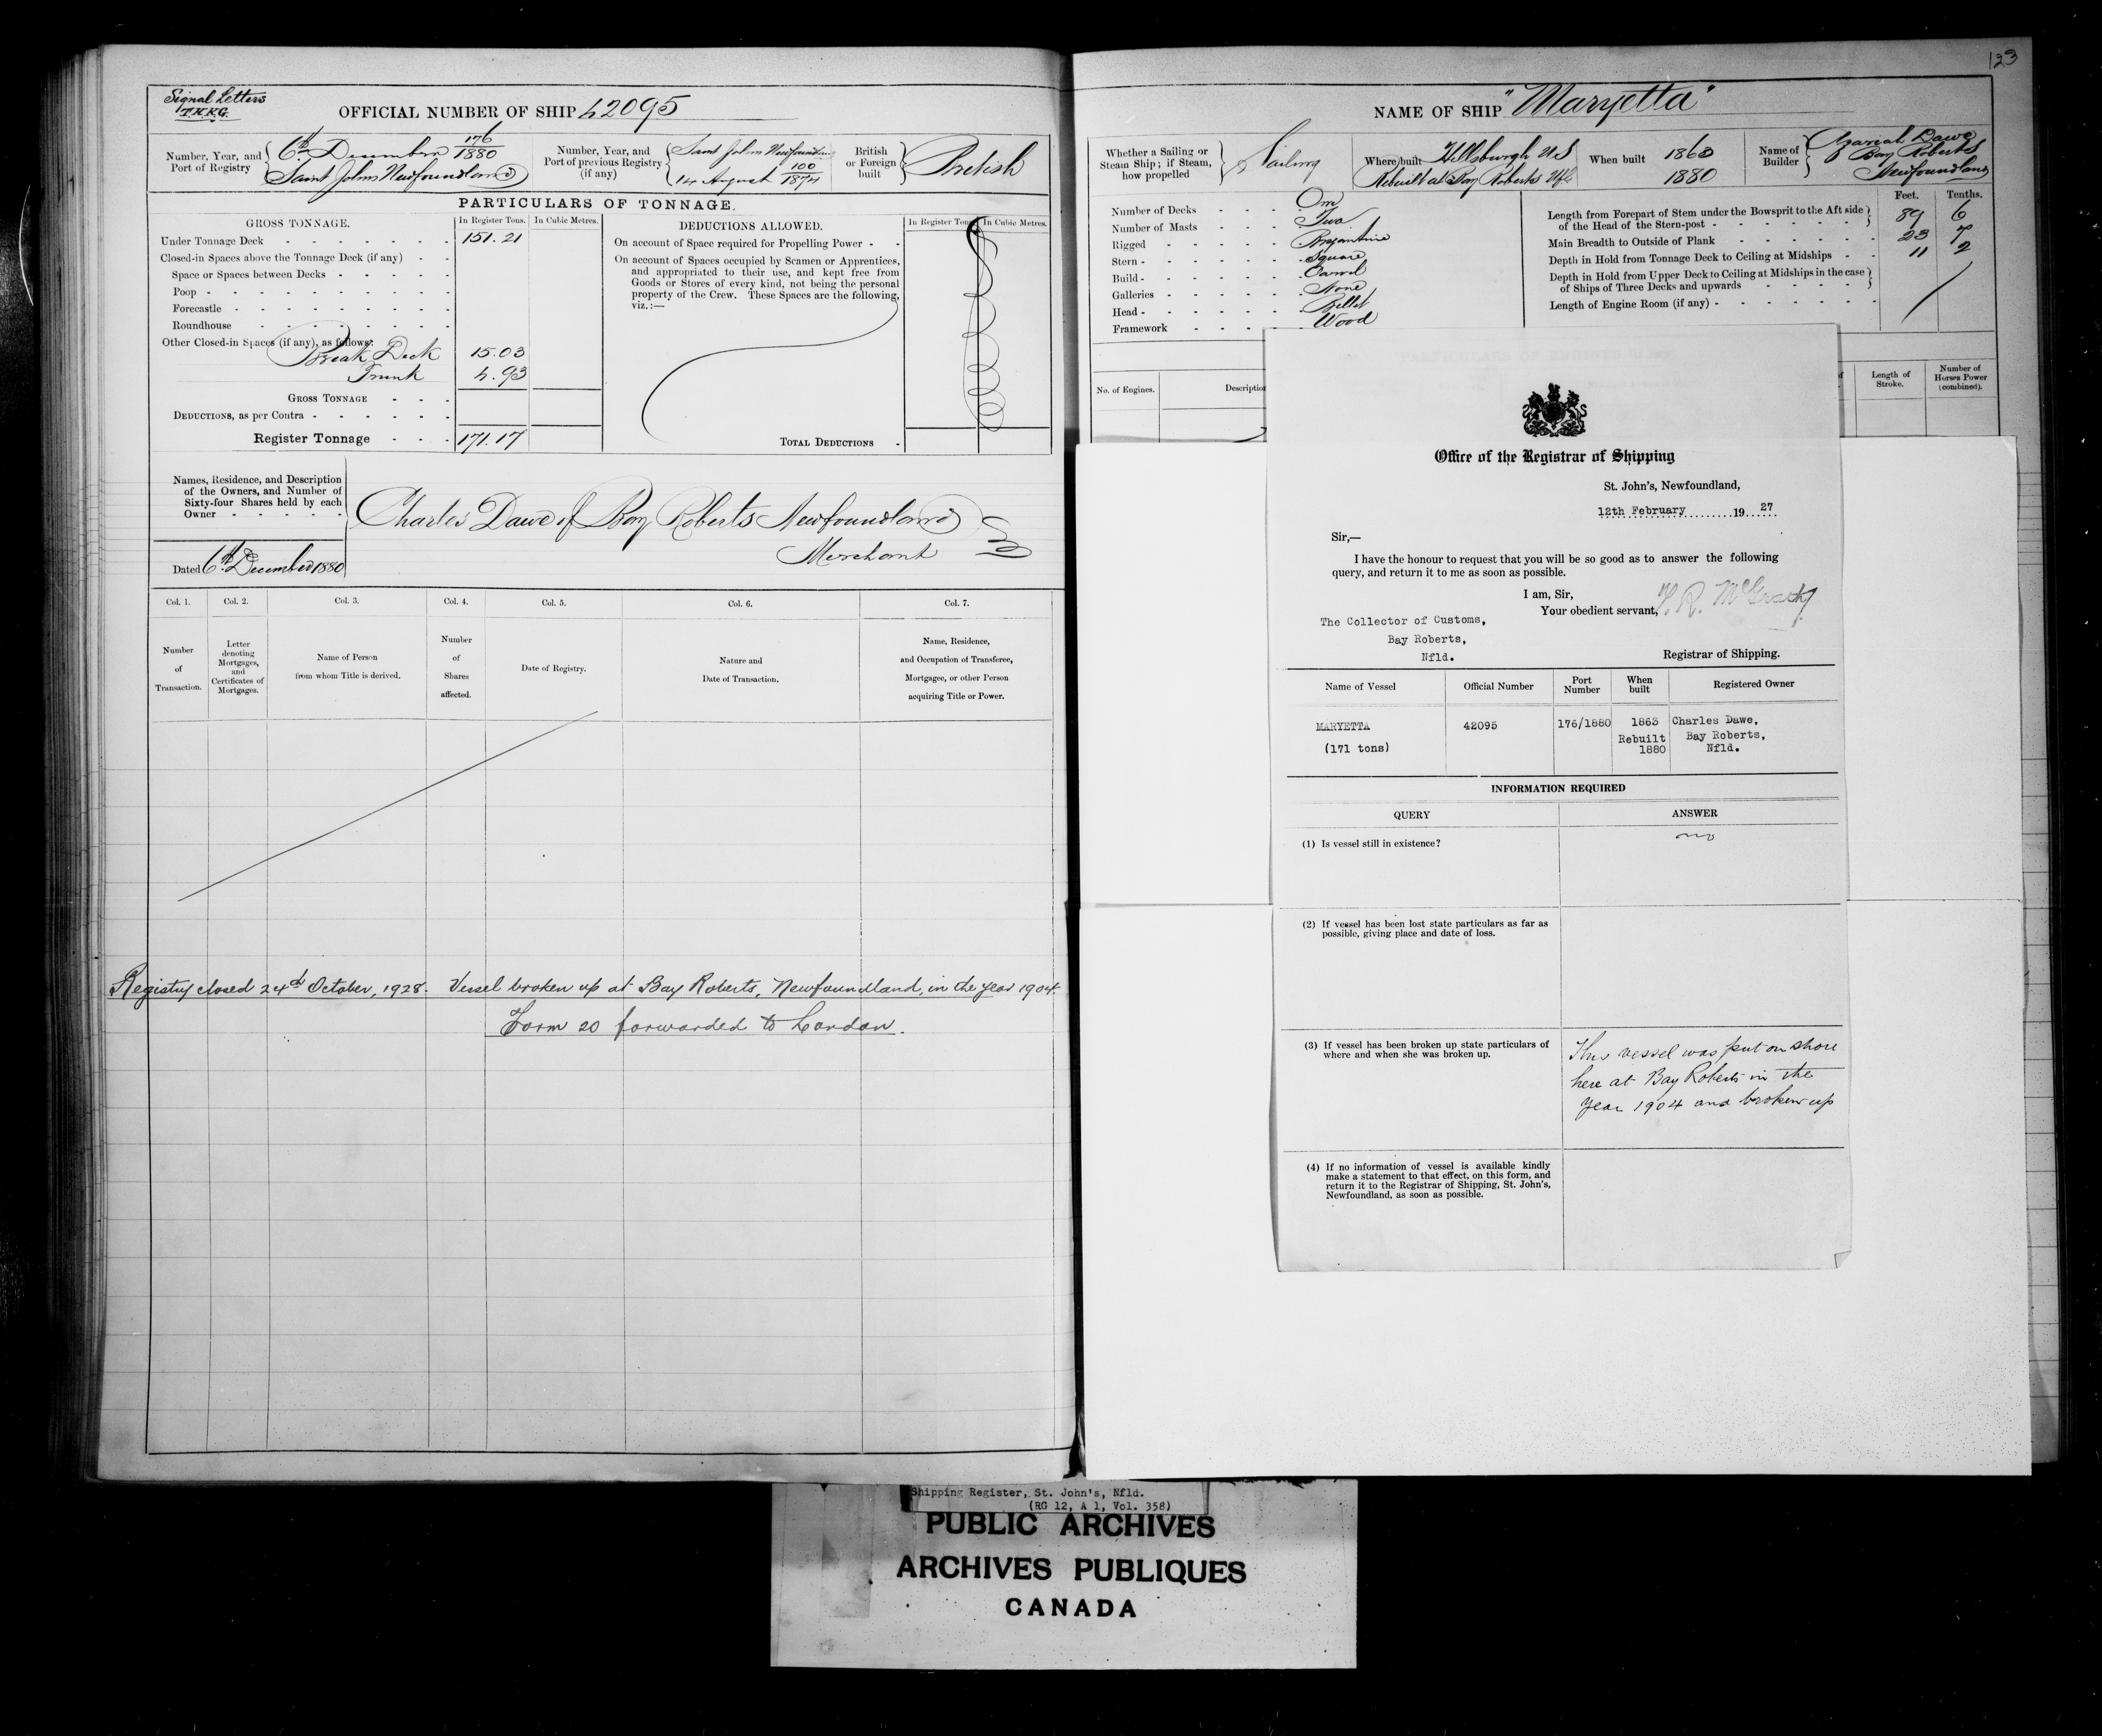 123
Signal Letters
T.K.K.G.
OFFICIAL NUMBER OF SHIP 42095
Number, Year, and
Port of Registry
6th December 176/1880
Saint Johns Newfoundland
Number, Year, and
Port of previous Registry
(if any)
Saint Johns Newfoundland
14 August 100/1874
British
or Foreign
built
British
PARTICULARS OF TONNAGE.
GROSS TONNAGE.
In Register Tons.
In Cubic Metres.
Under Tonnage Deck - 151.21
Closed-in Spaces above the Tonnage Deck (if any)
Space or Spaces between Decks
Poop
Forecastle
Roundhouse
Other Closed-in Spaces (if any), as follows:
Break Deck 15.03
Trunk 4.93
GROSS TONNAGE
DEDUCTIONS, as per Contra
Register Tonnage 171.17
DEDUCTIONS ALLOWED.
In Register Tons.
In Cubic Metres.
On account of Space required for Propelling Power
On account of Spaces occupied by Seamen or Apprentices,
and appropriated to their use, and kept free from
Goods or Stores of every kind, not being the personal
property of the Crew. These Spaces are the following,
viz.:—
TOTAL DEDUCTIONS
Names, Residence, and Description
of the Owners, and Number of
Sixty-four Shares held by each
Owner
Charles Dawe of Bay Roberts Newfoundland
Merchant
Dated 6th December 1880
Col. 1.
Col. 2.
Col. 3.
Col. 4.
Col. 5.
Col. 6.
Col. 7.
Number
of
Transaction.
Letter
denoting
Mortgages,
and
Certificates of
Mortgages.
Name of Person
from whom Title is derived.
Number
of
Shares
affected.
Date of Registry.
Nature and
Date of Transaction.
Name, Residence,
and Occupation of Transferee,
Mortgagee, or other Person
acquiring Title or Power.
Registry closed 24th October, 1928. Vessel broken up at Bay Roberts, Newfoundland, in the year 1904.
Form 20 forwarded to London.
NAME OF SHIP "Maryetta"
Whether a Sailing or
Steam Ship; if Steam,
how propelled
Sailing
Where built
Hillsburgh NS
Rebuilt at Bay Roberts Nfld
When built
1863
1880
Name of
Builder
Azariah Dawe
Bay Roberts
Newfoundland
Number of Decks - One
Number of Masts - Two
Rigged - Brigantine
Stern - Square
Build - Carvel
Galleries - None
Head - Billet
Framework - Wood
Feet. Tenths.
Length from Forepart of Stem under the Bowsprit to the Aft side
of the Head of the Stern-post - 89 6
Main Breadth to Outside of Plank - 23 7
Depth in Hold from Tonnage Deck to Ceiling at Midships - 11 2
Depth in Hold from Upper Deck to Ceiling at Midships in the case
of Ships of Three Decks and upwards
Length of Engine Room (if any)
No. of Engines.
Length of
Stroke.
Number of
Horses Power
(combined).
Office of the Registrar of Shipping
St. John's, Newfoundland,
12th February 1927
Sir,—
I have the honour to request that you will be so good as to answer the following
query, and return it to me as soon as possible.
I am, Sir,
Your obedient servant,
The Collector of Customs,
Bay Roberts,
Nfld.
Registrar of Shipping.
Name of Vessel
Official Number
Port
Number
When
built
Registered Owner
MARYETTA
(171 tons)
42095
176/1880
1863
Rebuilt
1880
Charles Dawe,
Bay Roberts,
Nfld.
INFORMATION REQUIRED
QUERY
ANSWER
(1) Is vessel still in existence?
no
(2) If vessel has been lost state particulars as far as
possible, giving place and date of loss.
(3) If vessel has been broken up state particulars of
where and when she was broken up.
This vessel was put on shore
here at Bay Roberts in the
year 1904 and broken up
(4) If no information of vessel is available kindly
make a statement to that effect, on this form, and
return it to the Registrar of Shipping, St. John's,
Newfoundland, as soon as possible.
Shipping Register, St. John's, Nfld.
(RG 12, A 1, Vol. 358)
PUBLIC ARCHIVES
ARCHIVES PUBLIQUES
CANADA